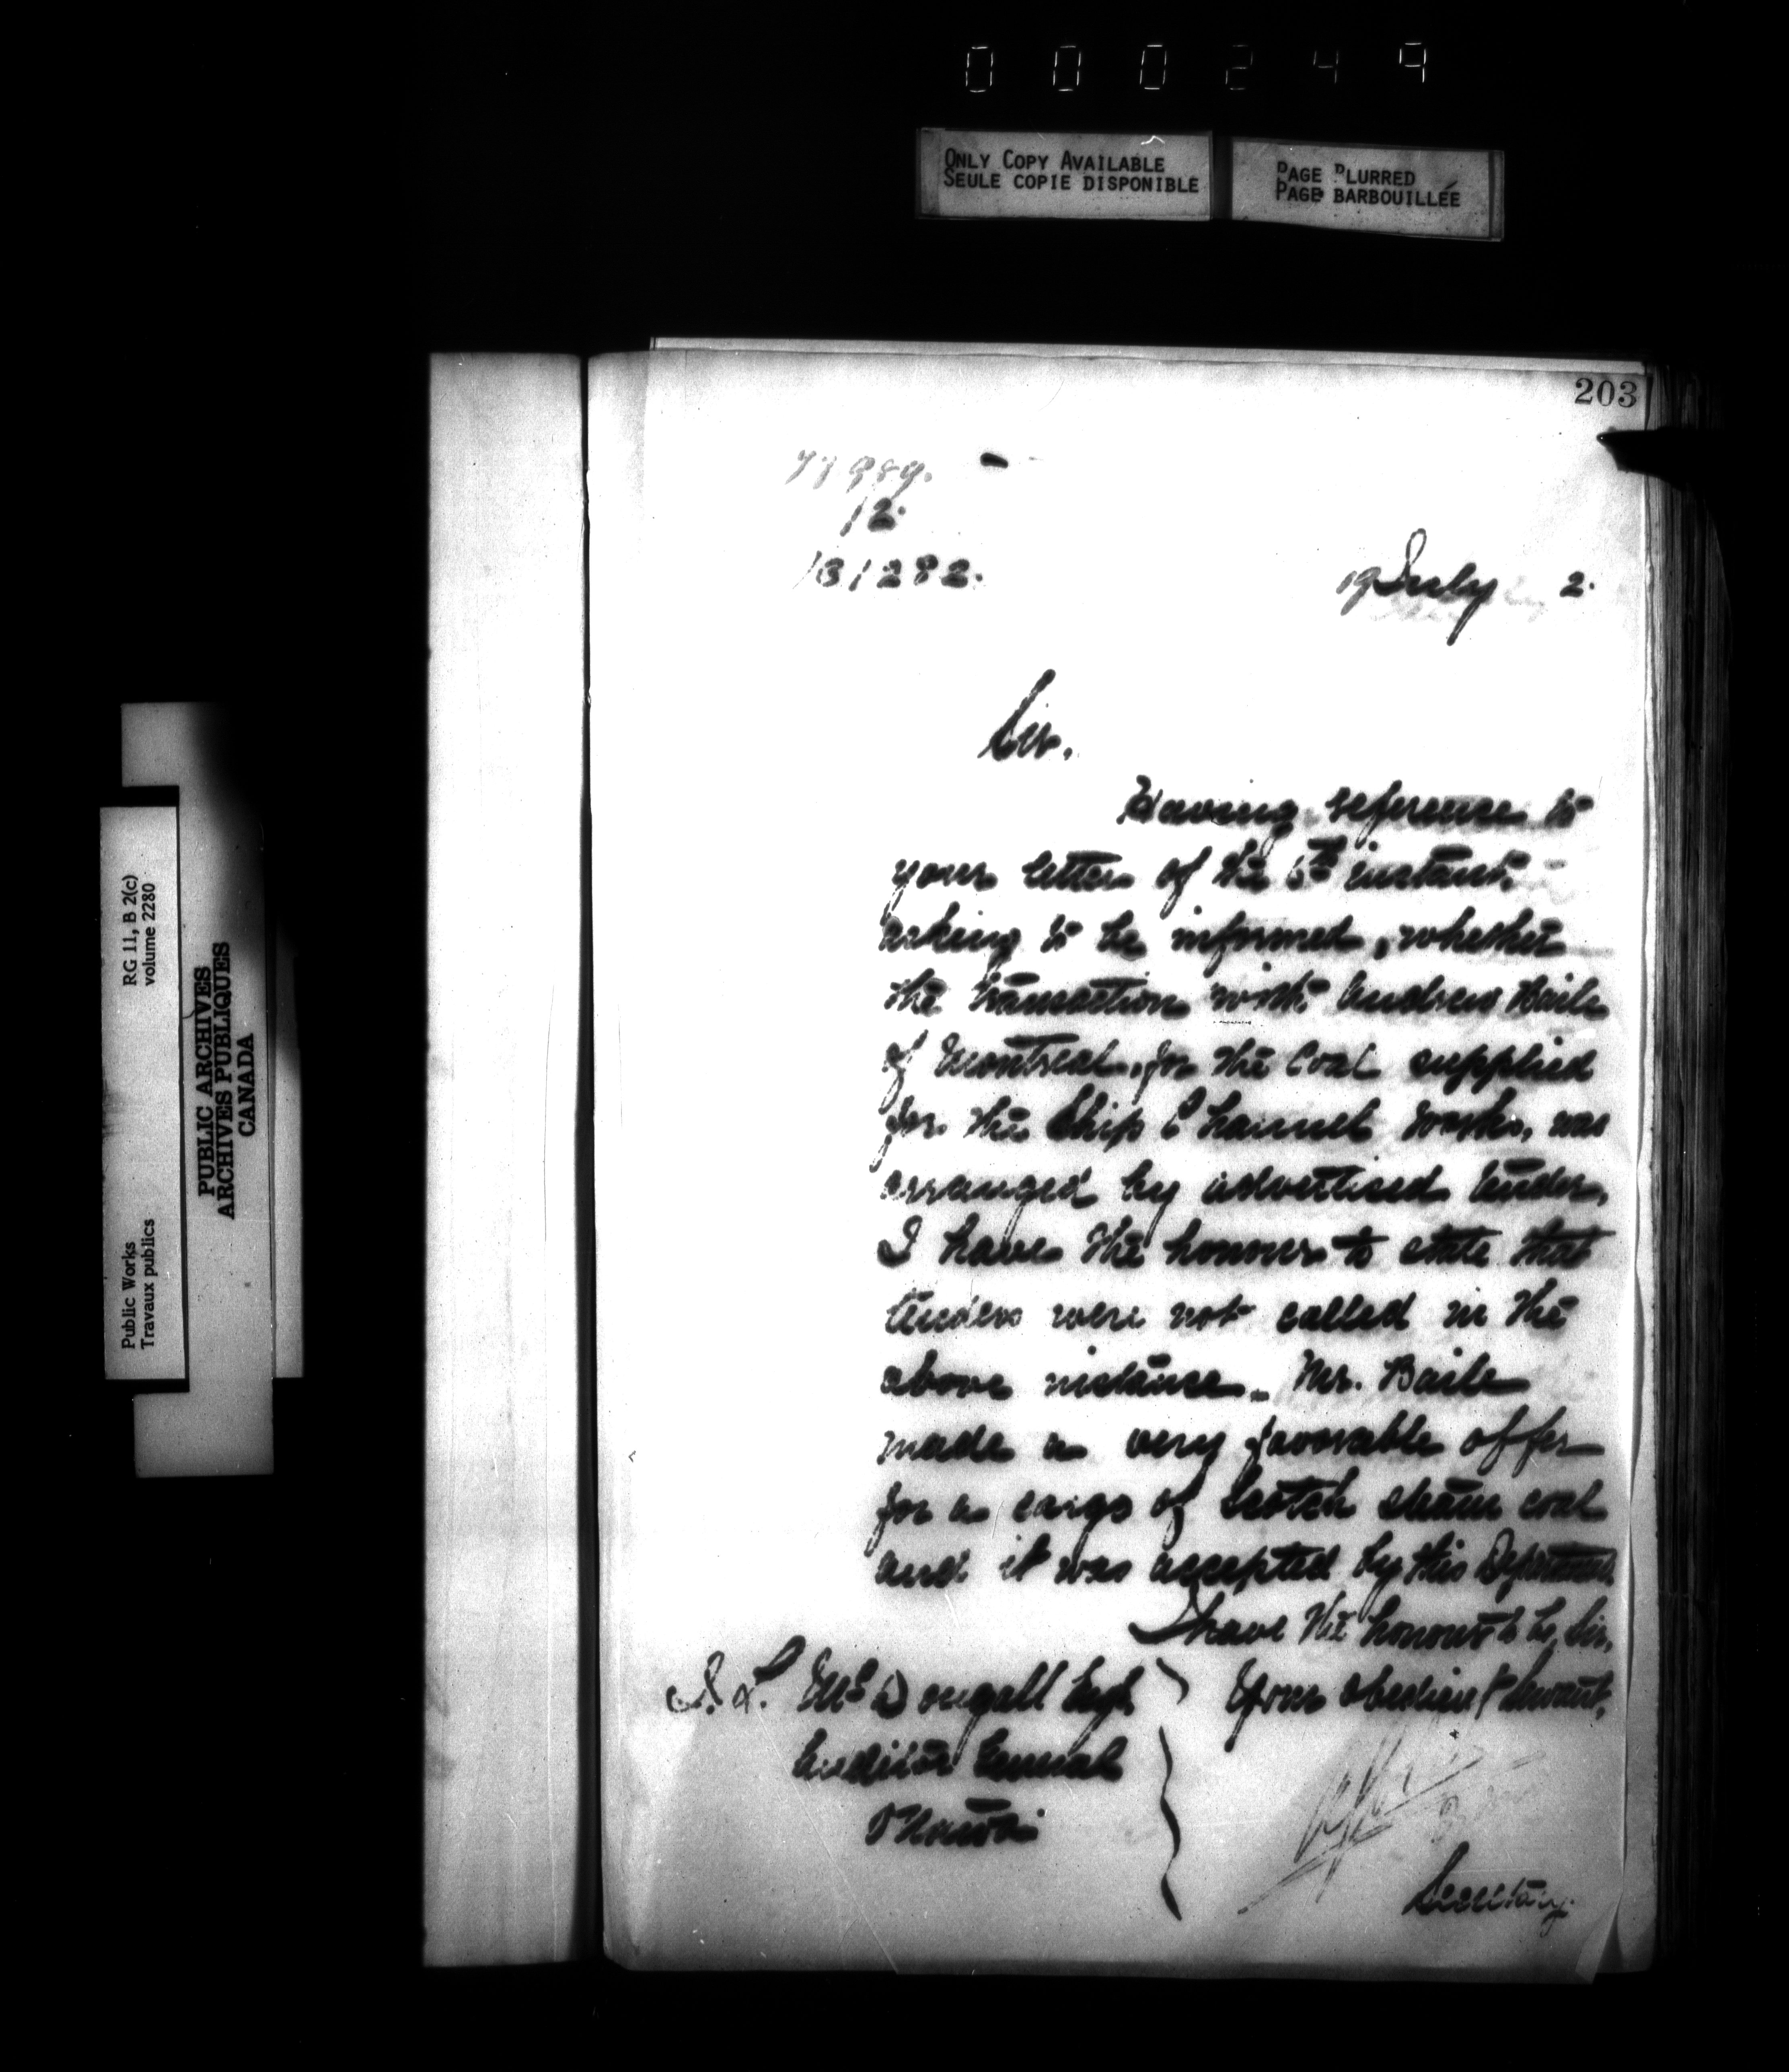 000249
ONLY COPY AVAILABLE
SEULE COPIE DISPONIBLE
PAGE BLURRED
PAGE BARBOUILLÉE
203
77989.
12.
131282.
19 July 2.
Sir,
Having reference to
your letter of the 6th instant,
asking to be informed, whether
the transaction with Andrew Baile
of Montreal, for the Coal supplied
for the Ship Channel works, was
arranged by advertised tender,
I have the honour to state that
tenders were not called in the
above instance. Mr. Baile
made a very favorable offer
for a cargo of Scotch steam coal
and it was accepted by this Department.
I have the honour to be, Sir,
Your obedient Servant,
J. L. McDougall Esq.
Auditor General
Ottawa
Secretary.
Public Works
Travaux publics
RG 11, B 2(c)
volume 2280
PUBLIC ARCHIVES
ARCHIVES PUBLIQUES
CANADA